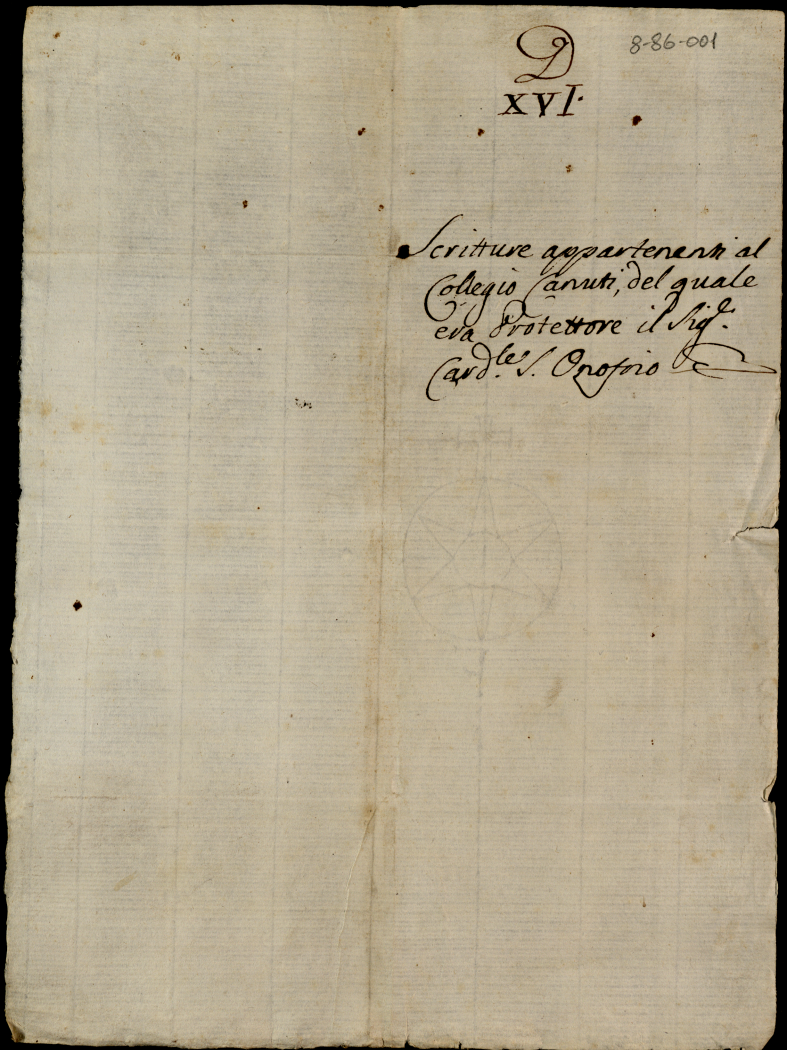 8-86-001
D
XVI.
Scritture appartenenti al
Collegio Canuti, del quale
era Protettore il Sig.e
Card.le S. Onofrio